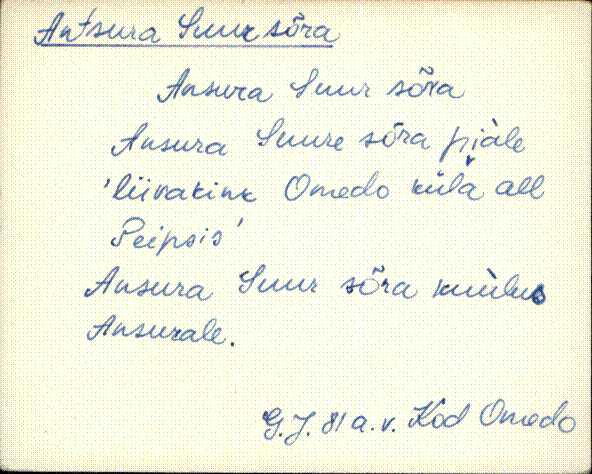 Antsura Suur sõra
Ansura Suur sõra
Ansura Suure sõra piàle
'liivakink Omedo küla all
Peipsis'
Ansura Suur sõra kuùlus
Ansurale.
G.J. 81 a. v. Kod Omedo